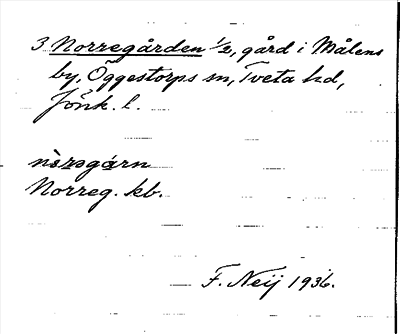 3 Norregården 1/2, gård i Målens
by, Öggestorps sn, Tveta hd,
Jönk. l.
Norreg. kb.
F. Neij 1936.